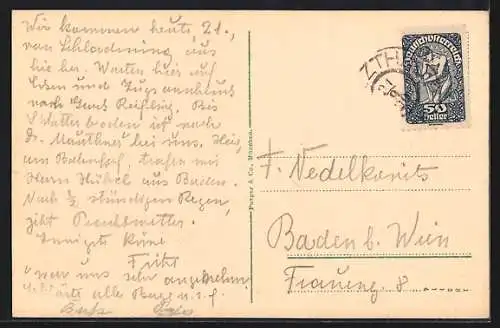 Wir kommen heute, 21.,
von Schladming aus
hie her. Warten hier auf
Essen und Zugsanschluss
nach Reifling. Bis
ist noch
Dr. Mauthner bei uns. Hier
am Bahnhof, trafen wir
Herrn Hübel aus Baden.
Nach ½ stündigen Regen,
gibt Prachtwetter.
Innigste Küsse
Fritz
war uns sehr angenehm
alle Berge u.s.f.
Purger & Co., München
Deutschösterreich
50
Heller
21
F. Nedelkovits
Baden b. Wien
Fraueng. 8